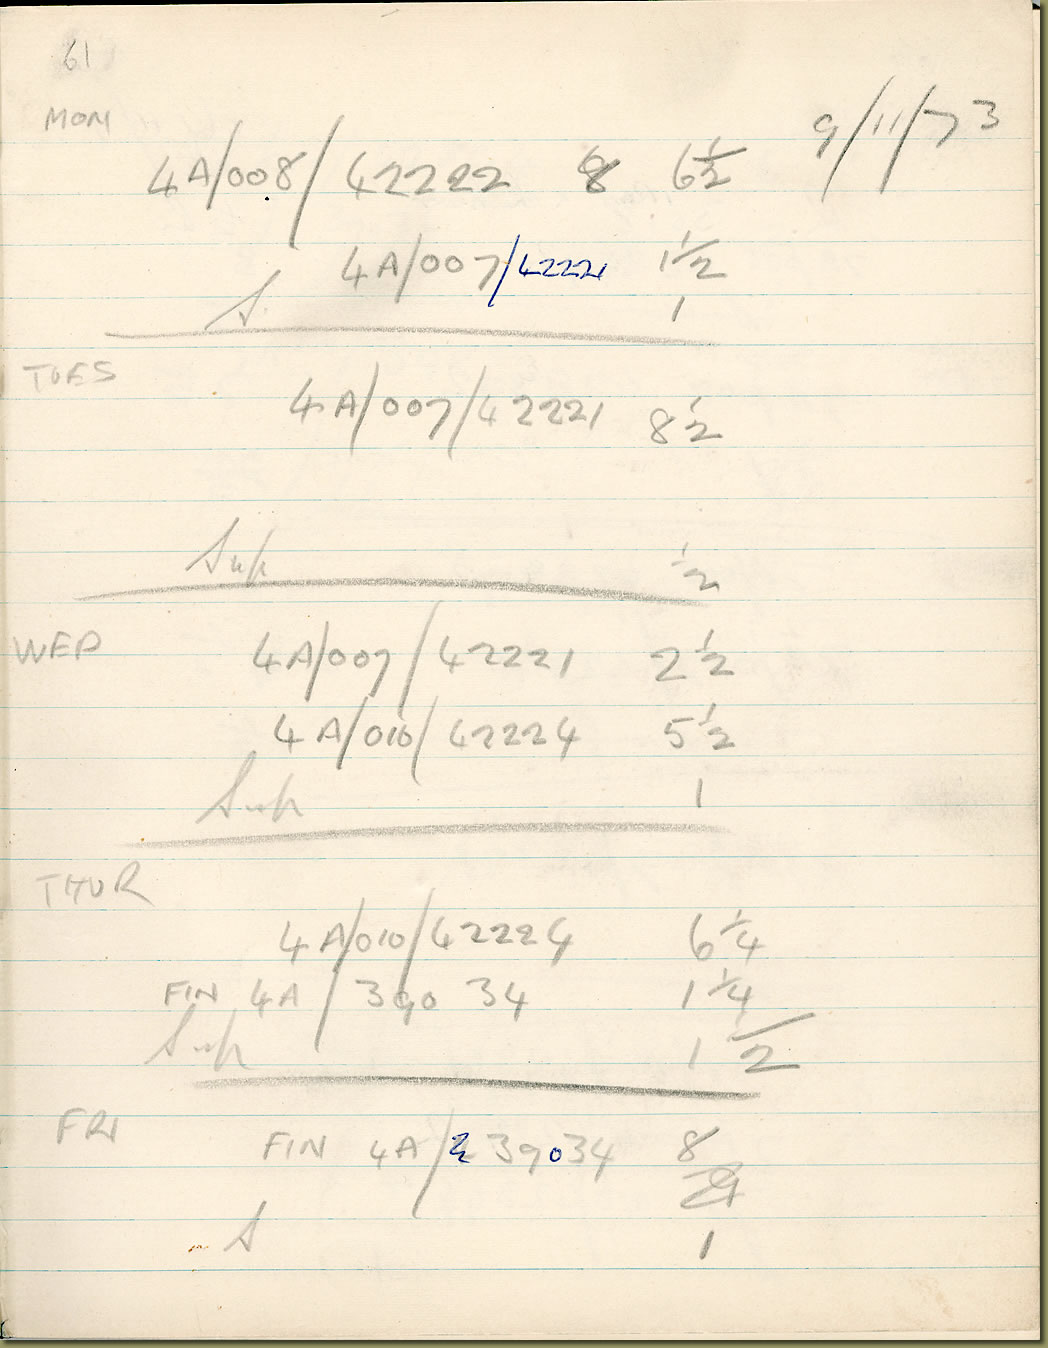 61
MON
9/11/73
4A/008/42222 8 6½
4A/007/42221 1½
S. 1
TUES
4A/007/42221 8½
Sup ½
WED
4A/007/42221 2½
4A/010/42224 5½
Sup 1
THUR
4A/010/42224 6¼
FIN 4A/39034 1¼
Sup 1½
FRI
FIN 4A/239034 8
S 1